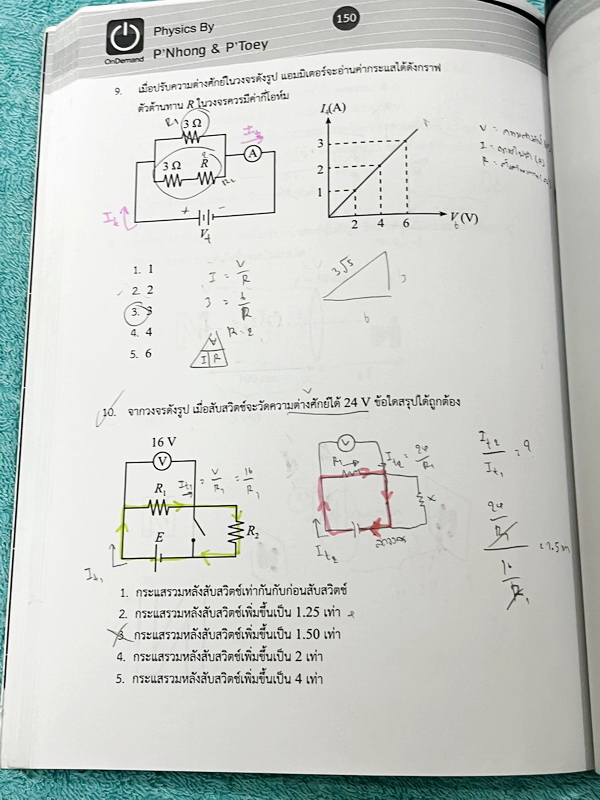 OnDemand
Physics By
P'Nhong & P'Toey
150
9. เมื่อปรับความต่างศักย์ในวงจรดังรูป แอมมิเตอร์จะอ่านค่ากระแสได้ดังกราฟ
ตัวต้านทาน R ในวงจรควรมีค่ากี่โอห์ม
R₁
3 Ω
3 Ω
R
R₂
A
Iₜ
+ −
Vₜ
Iₜ(A)
3
2
1
2 4 6
Vₜ(V)
V =
I =
R =
1. 1
2. 2
3. 3
4. 4
5. 6
I = V/R
3 = 6/R
R = 2
V
I R
3√5
3
6
10. จากวงจรดังรูป เมื่อสับสวิตช์จะวัดความต่างศักย์ได้ 24 V ข้อใดสรุปได้ถูกต้อง
16 V
V
R₁
Iₜ₁ = V/R₁ = 16/R₁
R₂
E
Iₜ₁
V
R₁
Iₜ₂ = 24/R₁
x
Iₜ₂
ลัดวงจร
Iₜ₂/Iₜ₁ = ?
24/R₁
16/R₁
1. กระแสรวมหลังสับสวิตช์เท่ากันกับก่อนสับสวิตช์
2. กระแสรวมหลังสับสวิตช์เพิ่มขึ้นเป็น 1.25 เท่า
3. กระแสรวมหลังสับสวิตช์เพิ่มขึ้นเป็น 1.50 เท่า
4. กระแสรวมหลังสับสวิตช์เพิ่มขึ้นเป็น 2 เท่า
5. กระแสรวมหลังสับสวิตช์เพิ่มขึ้นเป็น 4 เท่า